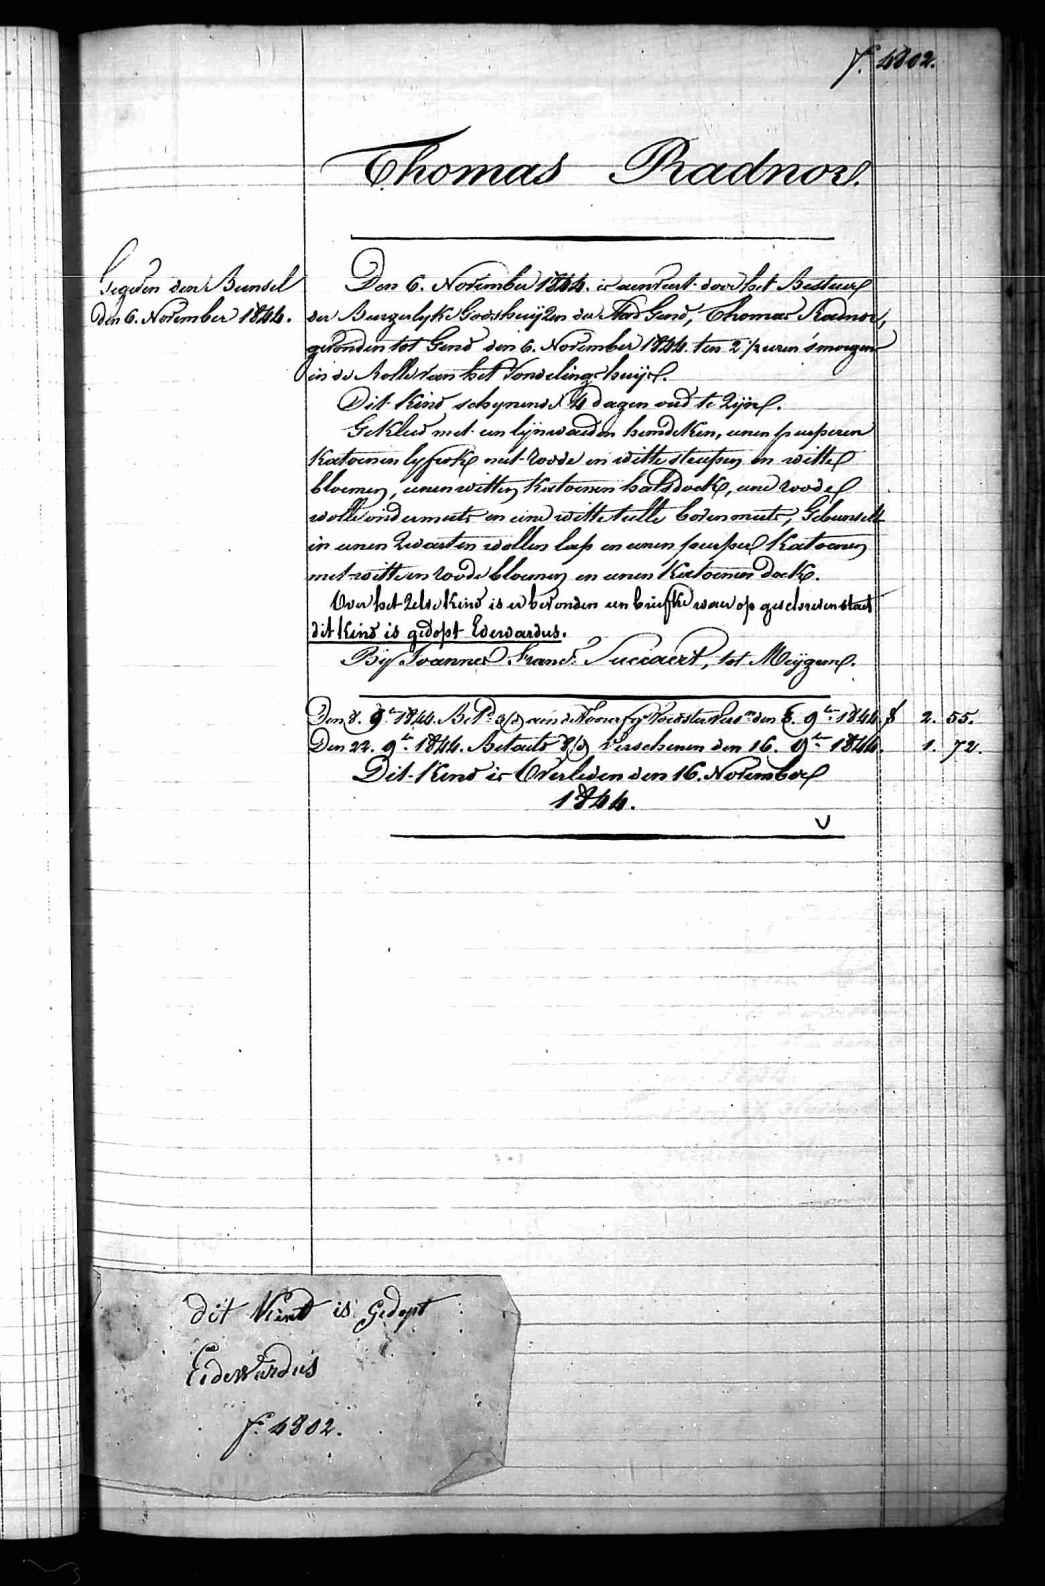 f.° 4802.
Thomas Radnor.
Gegeven den Bunsel
den 6. November 1844.
Den 6. November 1844. is aenveert door het Bestuer
der Burgerlyke Godshuijzen der Stad Gend, Thomas Radnor,
gevonden tot Gend den 6. November 1844. ten 2 ½ uren smorgens
in de Rolle van het Vondelingshuijs.
Dit Kind schynende 4 dagen oud te Zijn.
Gekleed met een lijnwaeden hemdeken, eenen purperen
Katoenen lyfrok met roode en witte streepen en witte
bloemen, eenen witten Katoenen halsdoek, eene roode
wolle ondermuts en eene witte tulle bovenmuts, Gebunselt
in eenen Zwarten wollen lap en eenen purper Katoenen
met witte en roode bloemen en eenen Katoenen doek.
Over het Zelve Kind is er bevonden een briefke waer op geschreven staet
dit Kind is gedopt Edewardus.
By Joannes Franc.s Succaert, tot Meijgem.
Den 8. 9.er 1844. Bet.d a/d aen de Voorsz. Voedster Versn den 8. 9.er 1844. f 2. 55.
Den 22. 9.er 1844. Betaeld 8/d Verschenen den 16. 9.er 1844. 1. 72.
Dit Kind is Overleden den 16. November
1844.
dit Kind is gedopt
Eidewardus
f.° 4802.